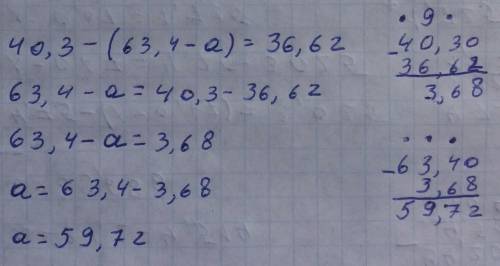 40,3-(63,4-a)=36,62
63,4-a=40,3-36,62
63,4-a=3,68
a=63,4-3,68
a=59,72
• 9 •
-40,30
36,62
3,68
• • •
-63,40
3,68
59,72